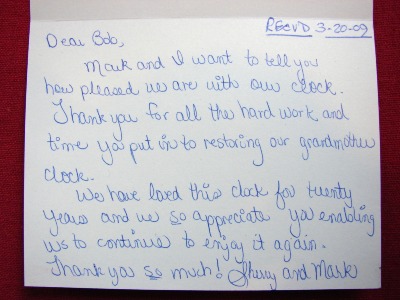 RECVD 3-20-09
Dear Bob,
Mark and I want to tell you
how pleased we are with our clock.
Thank you for all the hard work and
time you put in to restoring our grandmother
clock.
We have loved this clock for twenty
years and we so appreciate you enabling
us to continue to enjoy it again.
Thank you so much! Sherry and Mark